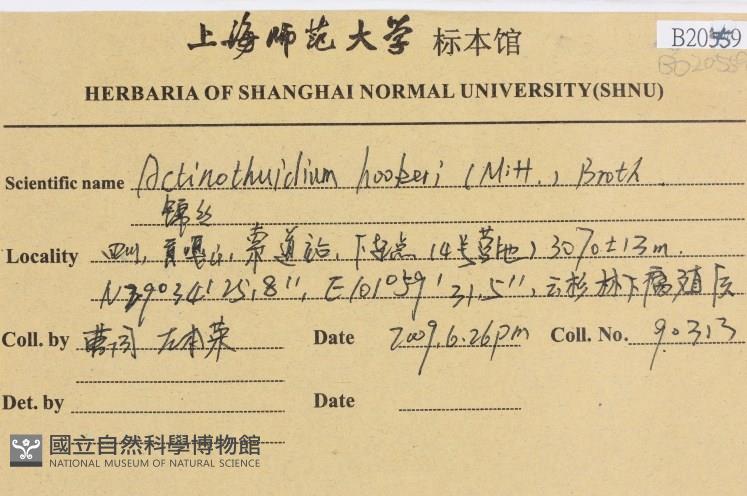 上海师范大学 标本馆
B20559
B020559
HERBARIA OF SHANGHAI NORMAL UNIVERSITY(SHNU)
Scientific name Actinothuidium hookeri (Mitt.) Broth.
锦丝
Locality 四川, 贡嘎山, 索道站, 下走点 (4号营地) 3070±13m.
N29°34'25.8", E101°59'31.5", 云杉林下腐殖质
Coll. by 曹同 左本荣 Date 2009.6.26pm Coll. No. 90313
Det. by Date
國立自然科學博物館
NATIONAL MUSEUM OF NATURAL SCIENCE